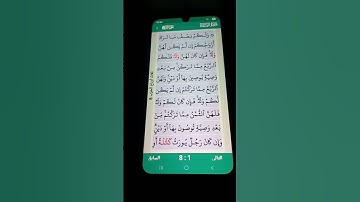 ۞ وَلَكُمْ نِصْفُ مَا تَرَكَ
أَزْوَٰجُكُمْ إِن لَّمْ يَكُن لَّهُنَّ
وَلَدٌ فَإِن كَانَ لَهُنَّ وَلَدٌ فَلَكُمُ
ٱلرُّبُعُ مِمَّا تَرَكْنَ مِنۢ بَعْدِ
وَصِيَّةٍ يُوصِينَ بِهَآ أَوْ دَيْنٍ وَلَهُنَّ
ٱلرُّبُعُ مِمَّا تَرَكْتُمْ إِن لَّمْ يَكُن
لَّكُمْ وَلَدٌ فَإِن كَانَ لَكُمْ وَلَدٌ
فَلَهُنَّ ٱلثُّمُنُ مِمَّا تَرَكْتُم مِّنۢ
بَعْدِ وَصِيَّةٍ تُوصُونَ بِهَآ أَوْ دَيْنٍ
وَإِن كَانَ رَجُلٌ يُورَثُ كَلَٰلَةً أَوِ
التالي 8 : 1 السابق